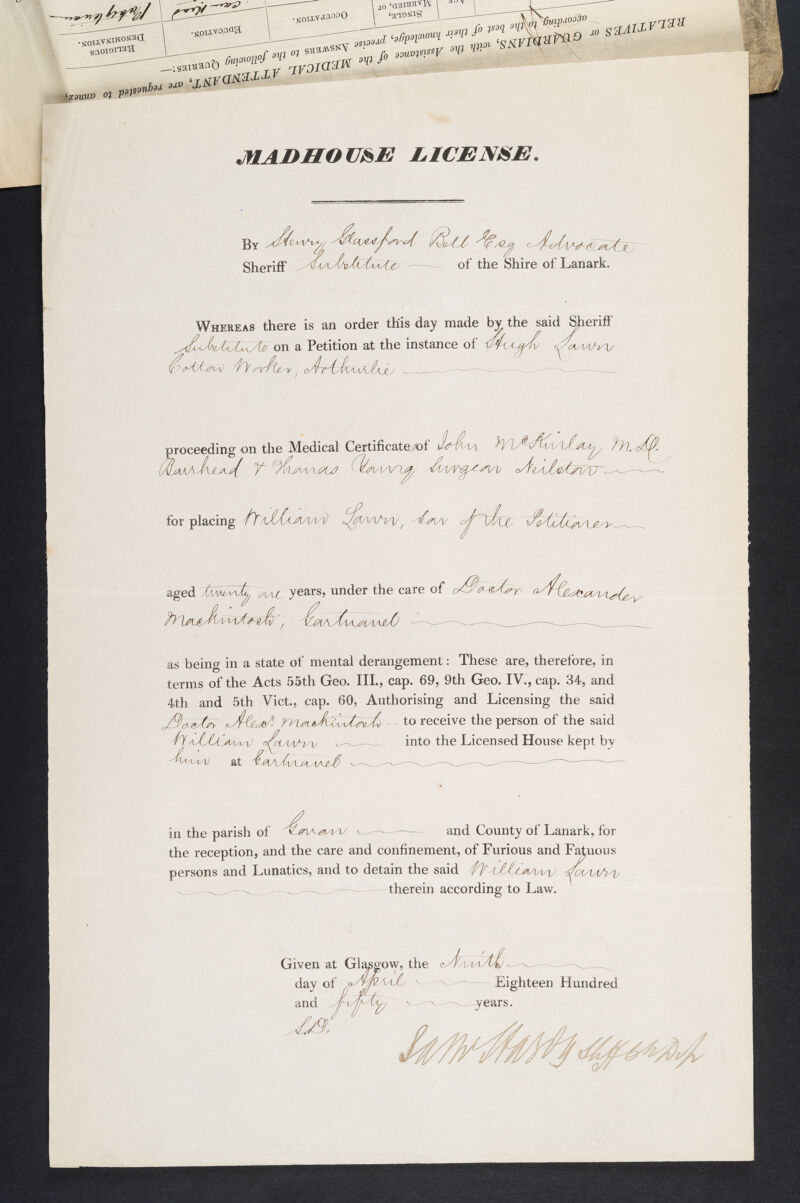 RELATIVES or GUARDIANS, with the Assistance of the MEDICAL ATTENDANT, are requested to annex,
according to the best of their knowledge, precise ANSWERS to the following QUERIES:—
SINGLE,
MARRIED, or
OCCUPATION.
EDUCATION.
RELIGIOUS
DENOMINATION.
can Read
MADHOUSE LICENSE.
BY Henry Glassford Bell Esq Advocate
Sheriff Substitute of the Shire of Lanark.
WHEREAS there is an order this day made by the said Sheriff
Substitute on a Petition at the instance of Hugh Lawn
Cotton Worker, Arthurlie
proceeding on the Medical Certificate of John McKinlay M.D.
Barrhead & Thomas Young Surgeon Neilston
for placing William Lawn, son of the Petitioner
aged twenty one years, under the care of Doctor Alexander
Mackintosh, Gartnavel
as being in a state of mental derangement: These are, therefore, in
terms of the Acts 55th Geo. III., cap. 69, 9th Geo. IV., cap. 34, and
4th and 5th Vict., cap. 60, Authorising and Licensing the said
Doctor Alexr. Mackintosh to receive the person of the said
William Lawn into the Licensed House kept by
him at Gartnavel
in the parish of Govan and County of Lanark, for
the reception, and the care and confinement, of Furious and Fatuous
persons and Lunatics, and to detain the said William Lawn
therein according to Law.
Given at Glasgow, the Ninth
day of April Eighteen Hundred
and fifty years.